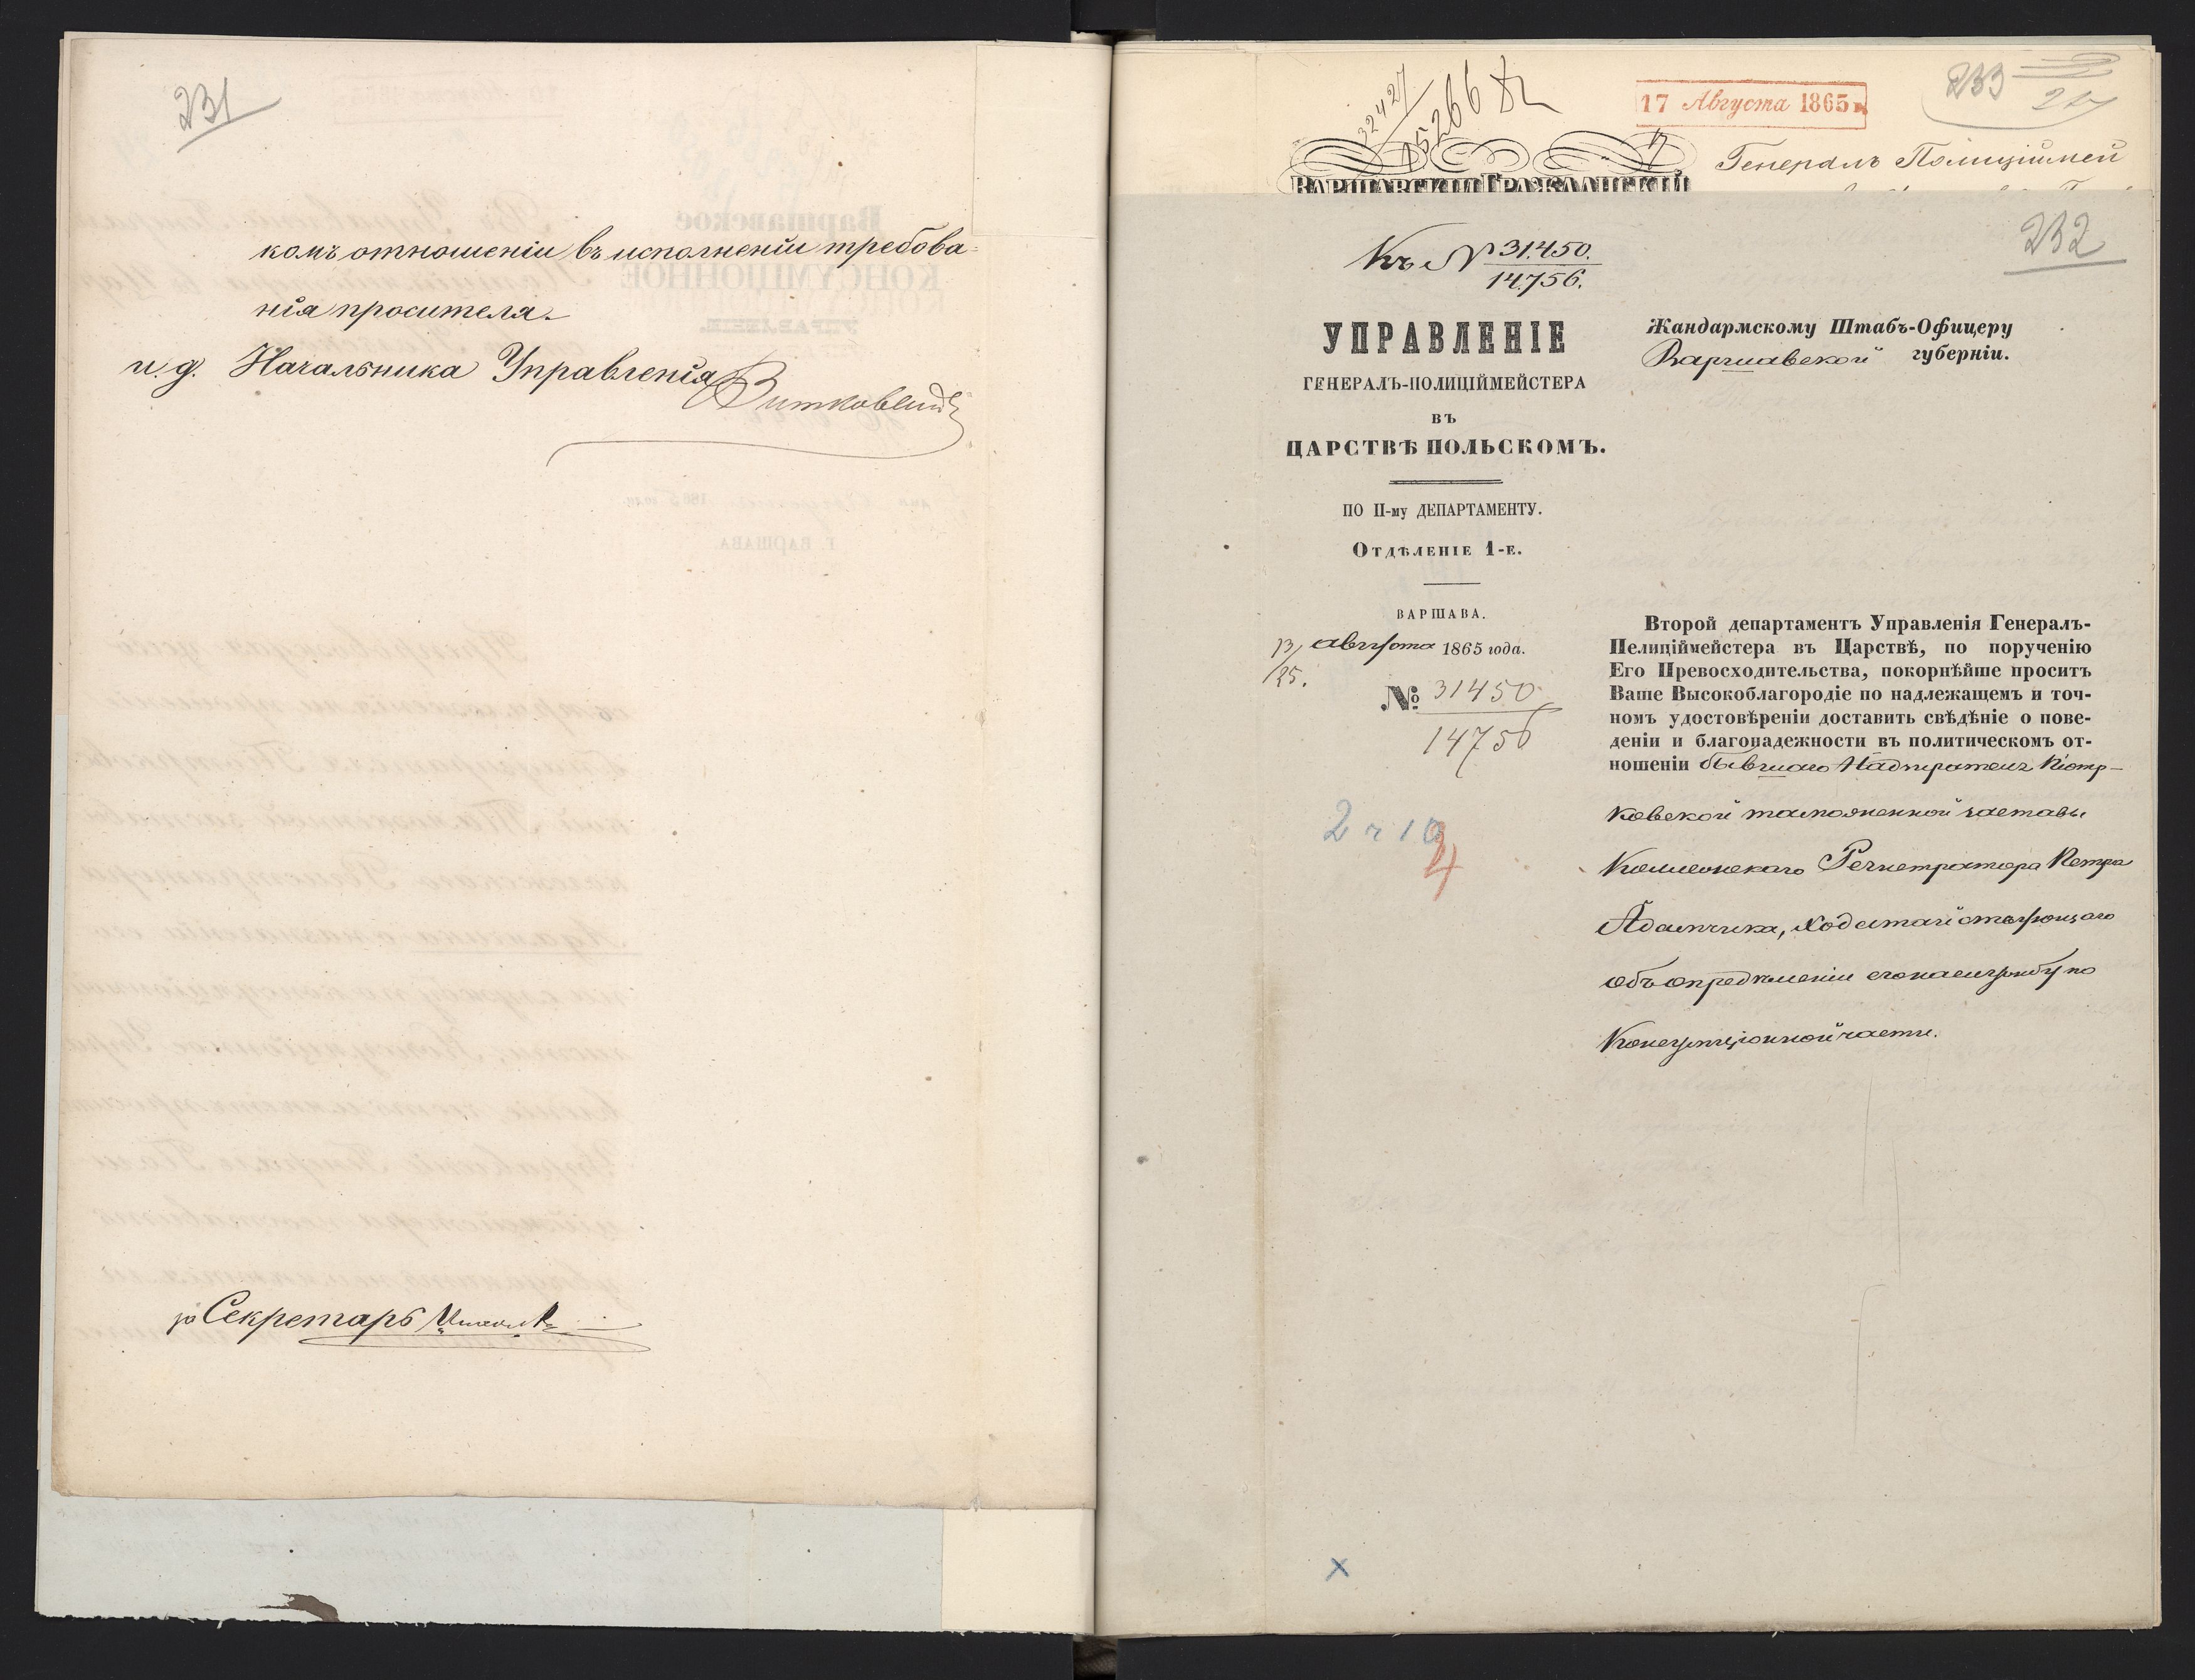 231
комъ отношеніи въ исполненіи требова=
нія просителя.
и. д. Начальника Управленія Витковскій
за Секретарь
32427
15266
17 Августа 1865
233
Генералъ Полиціймей
ВАРШАВСКІЙ ГРАЖДАНСКІЙ
232
Къ № 31450.
14756.
УПРАВЛЕНІЕ
ГЕНЕРАЛЪ-ПОЛИЦІЙМЕЙСТЕРА
ВЪ
ЦАРСТВѢ ПОЛЬСКОМЪ.
ПО II-му ДЕПАРТАМЕНТУ.
Отдѣленіе 1-е.
ВАРШАВА.
13/25. августа 1865 года.
№ 31450
14756
Жандармскому Штабъ-Офицеру
Варшавской губерніи.
Второй департаментъ Управленія Генералъ-
Пелиціймейстера въ Царствѣ, по порученію
Его Превосходительства, покорнѣйше проситъ
Ваше Высокоблагородіе по надлежащемъ и точ-
номъ удостовѣреніи доставить свѣдѣніе о пове-
деніи и благонадежности въ политическомъ от-
ношеніи бывшаго Надзирателя Піотр-
ковской таможенной заставы
Коллежскаго Регистратора Петра
Адамчика, ходатайствующаго
объ опредѣленіи его на службу по
Консумціонной части.
2 ч 10
4
х